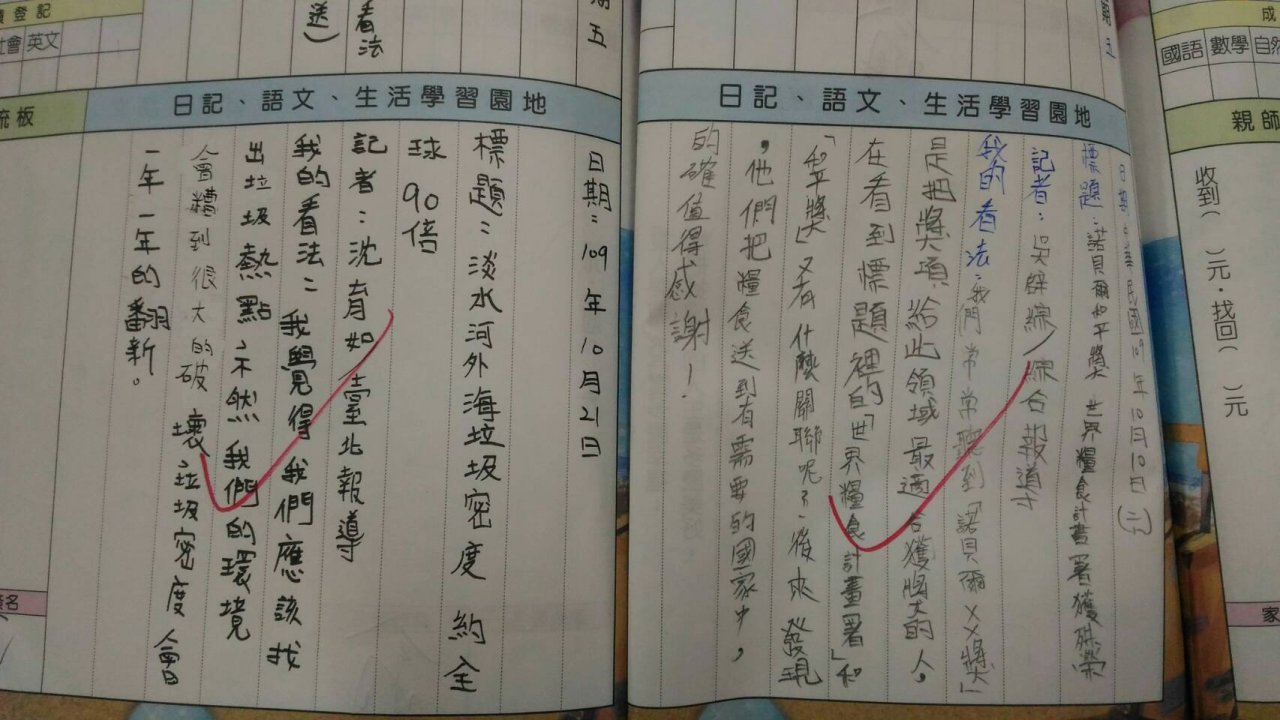 成
國語 數學 自然
親師
收到( )元·找回( )元
家
期五
日記、語文、生活學習園地
日期:中華民國109年10月10日(六)
標題:諾貝爾和平獎 世界糧食計畫署獲殊榮
記者:吳 綜合報導
我的看法:我們常常聽到「諾貝爾XX獎」
是把獎項給此領域最適合獲獎的人,
在看到標題裡的「世界糧食計畫署」和
「和平獎」又有什麼關聯呢?後來發現
,他們把糧食送到有需要的國家中,
的確值得感謝!
期五
看法
送)
日記、語文、生活學習園地
日期:109年10月21日
標題:淡水河外海垃圾密度 約全
球90倍
記者:沈育如/臺北報導
我的看法:我覺得我們應該找
出垃圾熱點,不然我們的環境
會糟到很大的破壞垃圾密度會
一年一年的翻新。
登記
社會 英文
流板
簽名